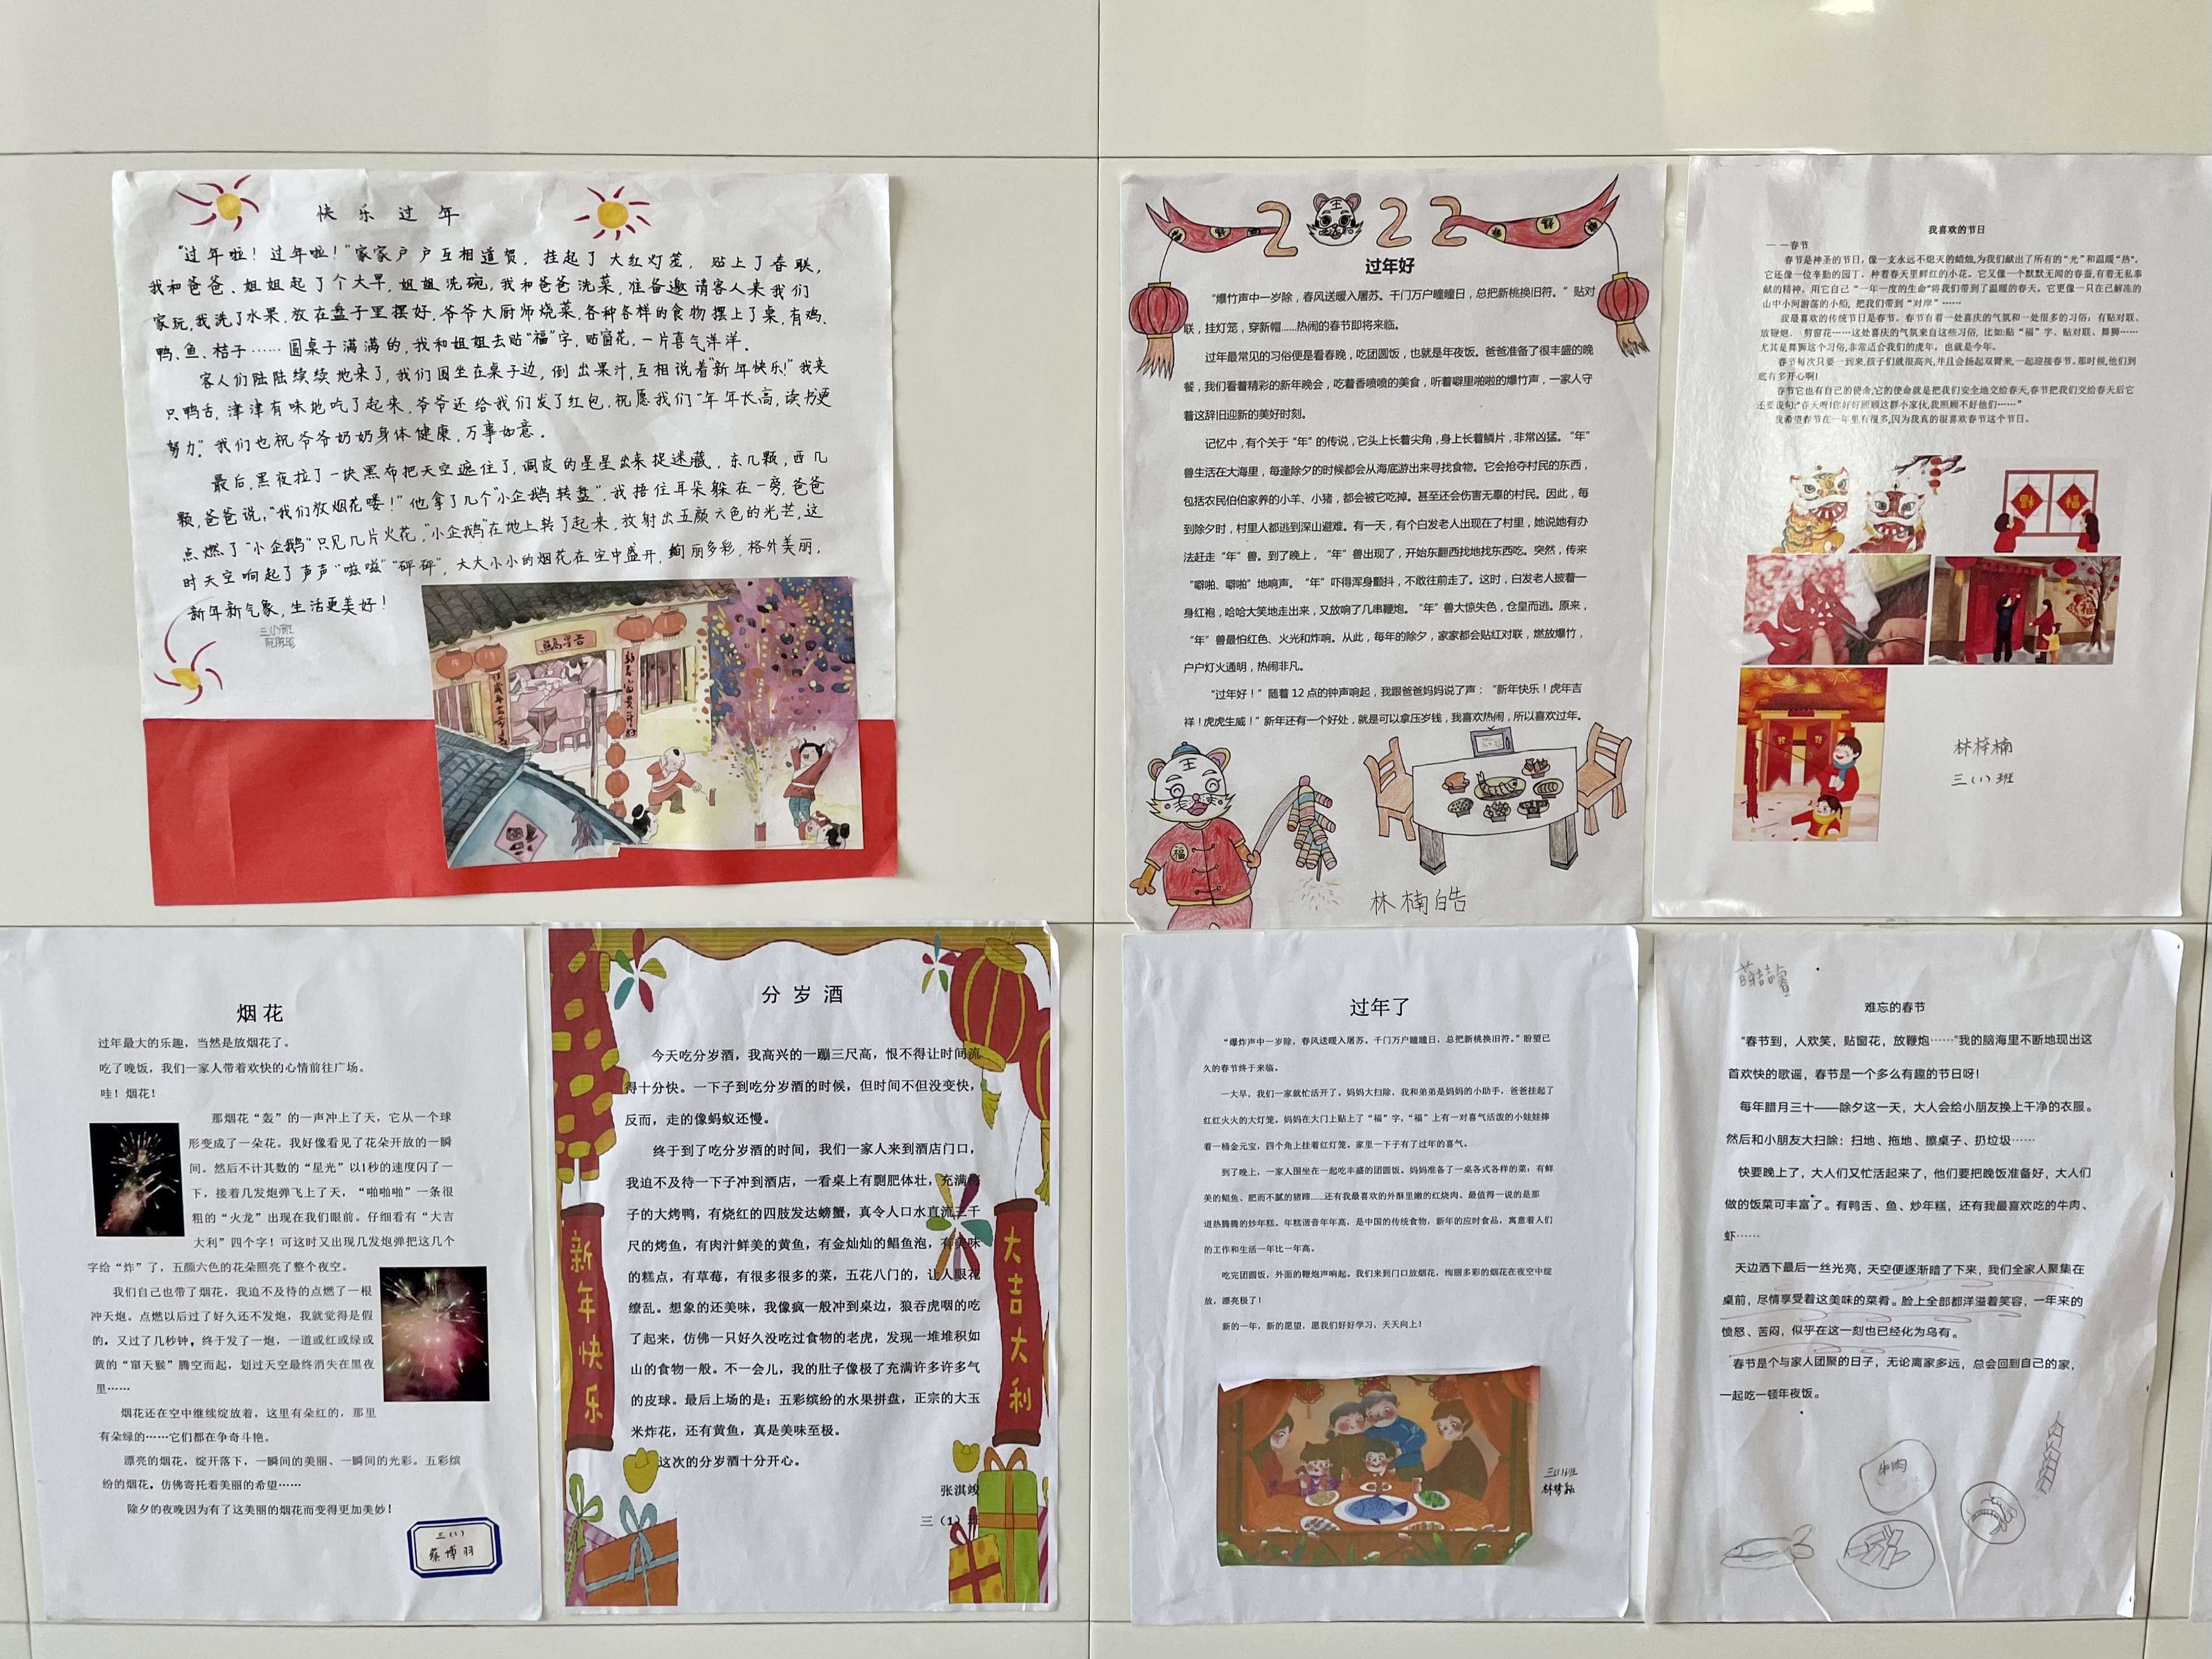 快乐过年
“过年啦！过年啦！”家家户户互相道贺，挂起了大红灯笼，贴上了春联，
我和爸爸、姐姐起了个大早，姐姐洗碗，我和爸爸洗菜，准备邀请客人来我们
家玩，我洗了水果，放在盘子里摆好，爷爷大厨师烧菜，各种各样的食物摆上了桌，有鸡、
鸭、鱼、桔子……圆桌子满满的，我和姐姐去贴“福”字，贴窗花，一片喜气洋洋。
客人们陆陆续续地来了，我们围坐在桌子边，倒出果汁，互相说着“新年快乐！”我夹
只鸭舌，津津有味地吃了起来，爷爷还给我们发了红包，祝愿我们“年年长高，读书更
努力”。我们也祝爷爷奶奶身体健康，万事如意。
最后，黑夜拉了一块黑布把天空遮住了，调皮的星星出来捉迷藏，东几颗，西几
颗，爸爸说，“我们放烟花喽！”他拿了几个“小企鹅转盘”，我捂住耳朵躲在一旁，爸爸
点燃了“小企鹅”只见几片火花，“小企鹅”在地上转了起来，放射出五颜六色的光芒，这
时天空响起了声声“嗞嗞”“砰砰”，大大小小的烟花在空中盛开，绚丽多彩，格外美丽，
新年新气象，生活更美好！
三(1)班
2022
过年好
“爆竹声中一岁除，春风送暖入屠苏。千门万户曈曈日，总把新桃换旧符。”贴对
联，挂灯笼，穿新帽......热闹的春节即将来临。
过年最常见的习俗便是看春晚，吃团圆饭，也就是年夜饭。爸爸准备了很丰盛的晚
餐，我们看着精彩的新年晚会，吃着香喷喷的美食，听着噼里啪啦的爆竹声，一家人守
着这辞旧迎新的美好时刻。
记忆中，有个关于“年”的传说，它头上长着尖角，身上长着鳞片，非常凶猛。“年”
兽生活在大海里，每逢除夕的时候都会从海底游出来寻找食物。它会抢夺村民的东西，
包括农民伯伯家养的小羊、小猪，都会被它吃掉。甚至还会伤害无辜的村民。因此，每
到除夕时，村里人都逃到深山避难。有一天，有个白发老人出现在了村里，她说她有办
法赶走“年”兽。到了晚上，“年”兽出现了，开始东翻西找地找东西吃。突然，传来
“噼啪、噼啪”地响声。“年”吓得浑身颤抖，不敢往前走了。这时，白发老人披着一
身红袍，哈哈大笑地走出来，又放响了几串鞭炮。“年”兽大惊失色，仓皇而逃。原来，
“年”兽最怕红色、火光和炸响。从此，每年的除夕，家家都会贴红对联，燃放爆竹，
户户灯火通明，热闹非凡。
“过年好！”随着12点的钟声响起，我跟爸爸妈妈说了声：“新年快乐！虎年吉
祥！虎虎生威！”新年还有一个好处，就是可以拿压岁钱，我喜欢热闹，所以喜欢过年。
福
林楠皓
我喜欢的节日
— —春节
春节是神圣的节日，像一支永远不熄灭的蜡烛，为我们献出了所有的“光”和温暖“热”。
它还像一位辛勤的园丁，种着春天里鲜红的小花。它又像一个默默无闻的春蚕，有着无私奉
献的精神，用它自己“一年一度的生命”将我们带到了温暖的春天。它更像一只在己解冻的
山中小河游荡的小船，把我们带到“对岸”……
我最喜欢的传统节日是春节。春节有着一处喜庆的气氛和一处很多的习俗；有贴对联、
放鞭炮、剪窗花……这处喜庆的气氛来自这些习俗，比如：贴“福”字、贴对联、舞狮……
尤其是舞狮这个习俗，非常适会我们的虎年，也就是今年。
春节每次只要一到来，孩子们就很高兴，并且会扬起双臂来，一起迎接春节。那时候，他们到
底有多开心啊！
春节它也有自己的使命，它的使命就是把我们安全地交给春天，春节把我们交给春天后它
还要说句：“春天呀！你好好照顾这群小家伙，我照顾不好他们……”
我希望春节在一年里有很多，因为我真的很喜欢春节这个节日。
福
林梓楠
三(1)班
烟花
过年最大的乐趣，当然是放烟花了。
吃了晚饭，我们一家人带着欢快的心情前往广场。
哇！烟花！
那烟花“轰”的一声冲上了天，它从一个球
形变成了一朵花。我好像看见了花朵开放的一瞬
间。然后不计其数的“星光”以1秒的速度闪了一
下，接着几发炮弹飞上了天，“啪啪啪”一条很
粗的“火龙”出现在我们眼前。仔细看有“大吉
大利”四个字！可这时又出现几发炮弹把这几个
字给“炸”了，五颜六色的花朵照亮了整个夜空。
我们自己也带了烟花，我迫不及待的点燃了一根
冲天炮。点燃以后过了好久还不发炮，我就觉得是假
的。又过了几秒钟，终于发了一炮，一道或红或绿或
黄的“窜天猴”腾空而起，划过天空最终消失在黑夜
里……
烟花还在空中继续绽放着，这里有朵红的，那里
有朵绿的……它们都在争奇斗艳。
漂亮的烟花，绽开落下，一瞬间的美丽、一瞬间的光彩。五彩缤
纷的烟花，仿佛寄托着美丽的希望……
除夕的夜晚因为有了这美丽的烟花而变得更加美妙！
三(1)
蔡博羽
分岁酒
今天吃分岁酒，我高兴的一蹦三尺高，恨不得让时间流
得十分快。一下子到吃分岁酒的时候，但时间不但没变快，
反而，走的像蚂蚁还慢。
终于到了吃分岁酒的时间，我们一家人来到酒店门口，
我迫不及待一下子冲到酒店，一看桌上有剽肥体壮，充满
子的大烤鸭，有烧红的四肢发达螃蟹，真令人口水直流三千
尺的烤鱼，有肉汁鲜美的黄鱼，有金灿灿的鲳鱼泡，有美味
的糕点，有草莓，有很多很多的菜，五花八门的，让人眼花
缭乱。想象的还美味，我像疯一般冲到桌边，狼吞虎咽的吃
了起来，仿佛一只好久没吃过食物的老虎，发现一堆堆积如
山的食物一般。不一会儿，我的肚子像极了充满许多许多气
的皮球。最后上场的是：五彩缤纷的水果拼盘，正宗的大玉
米炸花，还有黄鱼，真是美味至极。
这次的分岁酒十分开心。
张淇竣
三（1）班
新年快乐
大吉大利
过年了
“爆炸声中一岁除，春风送暖入屠苏。千门万户曈曈日，总把新桃换旧符。”盼望已
久的春节终于来临。
一大早，我们一家就忙活开了，妈妈大扫除，我和弟弟是妈妈的小助手，爸爸挂起了
红红火火的大灯笼。妈妈在大门上贴上了“福”字，“福”上有一对喜气活泼的小娃娃捧
着一桶金元宝，四个角上挂着红灯笼。家里一下子有了过年的喜气。
到了晚上，一家人围坐在一起吃丰盛的团圆饭。妈妈准备了一桌各式各样的菜：有鲜
美的鲳鱼、肥而不腻的猪蹄......还有我最喜欢的外酥里嫩的红烧肉。最值得一说的是那
道热腾腾的炒年糕。年糕谐音年年高，是中国的传统食物，新年的应时食品，寓意着人们
的工作和生活一年比一年高。
吃完团圆饭，外面的鞭炮声响起。我们来到门口放烟花，绚丽多彩的烟花在夜空中绽
放，漂亮极了！
新的一年，新的愿望，愿我们好好学习，天天向上！
三(1)班
难忘的春节
“春节到，人欢笑，贴窗花，放鞭炮……”我的脑海里不断地现出这
首欢快的歌谣，春节是一个多么有趣的节日呀！
每年腊月三十——除夕这一天，大人会给小朋友换上干净的衣服。
然后和小朋友大扫除：扫地、拖地、擦桌子、扔垃圾……
快要晚上了，大人们又忙活起来了，他们要把晚饭准备好，大人们
做的饭菜可丰富了。有鸭舌、鱼、炒年糕，还有我最喜欢吃的牛肉、
虾……
天边洒下最后一丝光亮，天空便逐渐暗了下来，我们全家人聚集在
桌前，尽情享受着这美味的菜肴。脸上全部都洋溢着笑容，一年来的
愤怒、苦闷，似乎在这一刻也已经化为乌有。
春节是个与家人团聚的日子，无论离家多远，总会回到自己的家，
一起吃一顿年夜饭。
牛肉